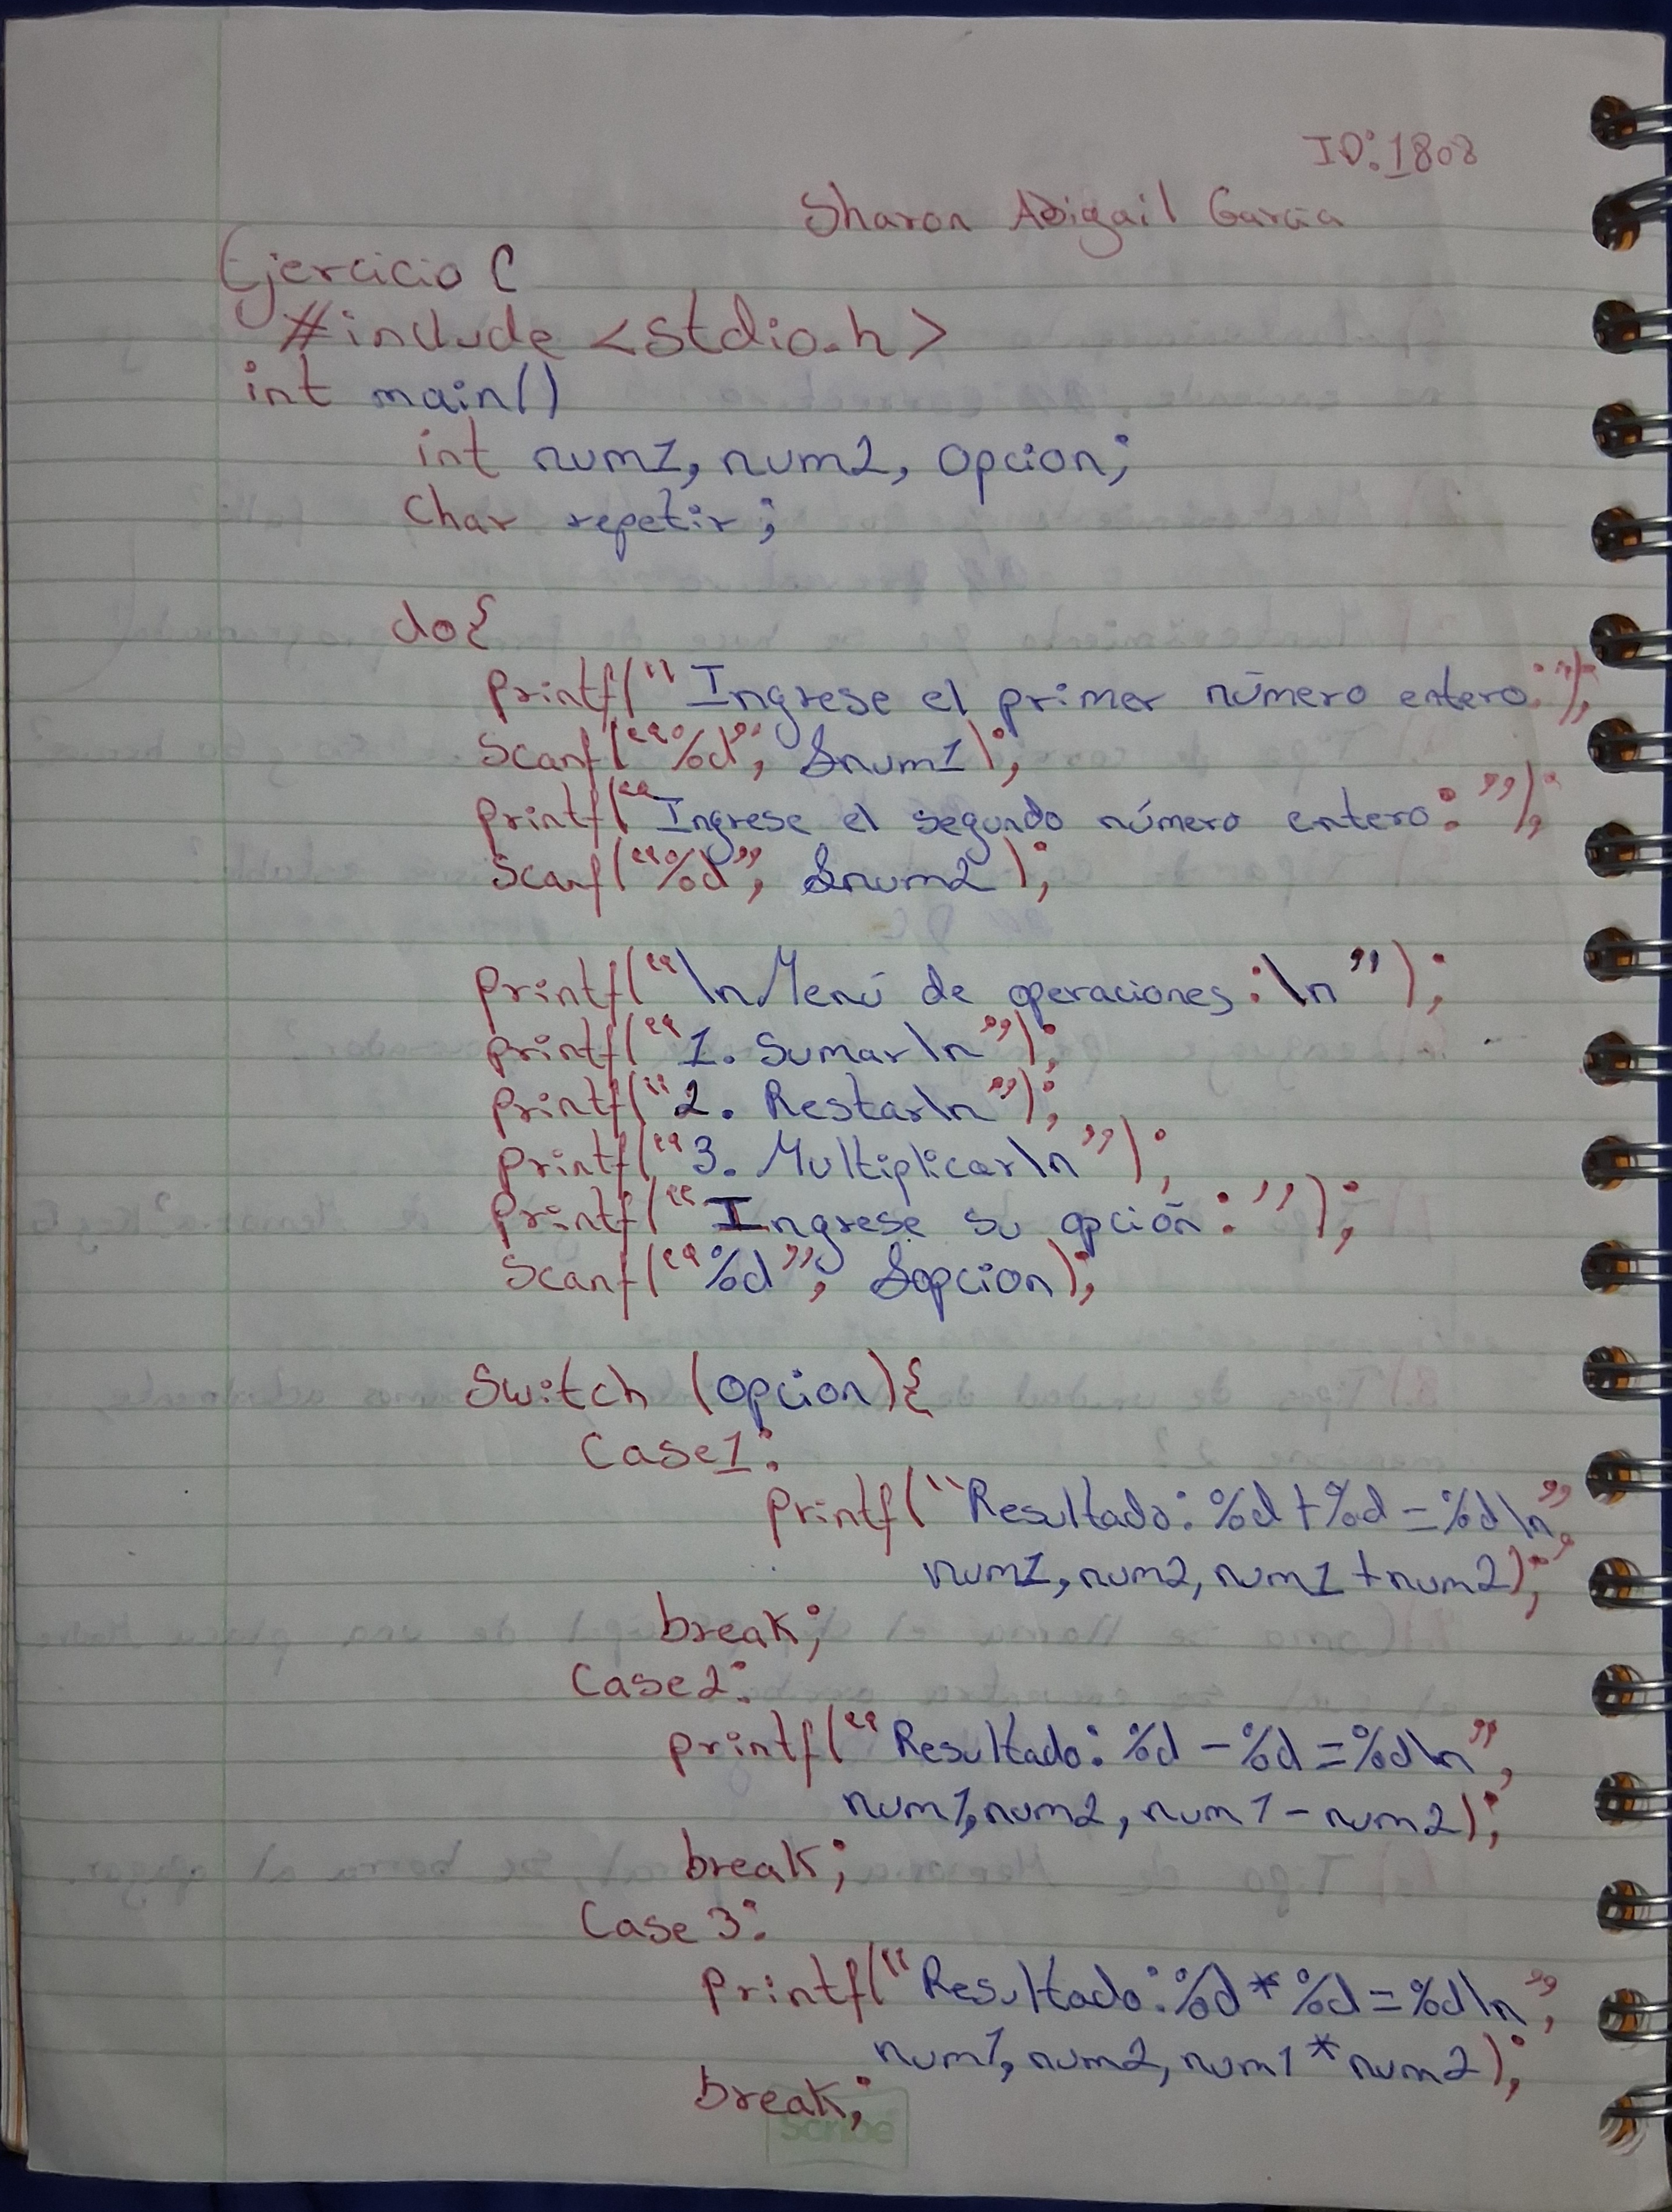 ID:1808
Sharon Abigail Garcia
Ejercicio C
#include <stdio.h>
int main()
int num1, num2, opcion;
Char repetir;
do{
printf("Ingrese el primer número entero:");
Scanf("%d", &num1);
printf("Ingrese el segundo número entero:");
Scanf("%d", &num2);
printf("\nMenú de operaciones:\n");
printf("1. Sumar\n");
printf("2. Restar\n");
printf("3. Multiplicar\n");
printf("Ingrese su opción:");
Scanf("%d", &opcion);
Switch (opcion){
Case1:
printf("Resultado: %d+%d=%d\n",
num1, num2, num1+num2);
break;
Case2:
printf("Resultado: %d-%d=%d\n",
num1, num2, num1-num2);
break;
Case 3:
printf("Resultado: %d*%d=%d\n",
num1, num2, num1*num2);
break;
Scribe